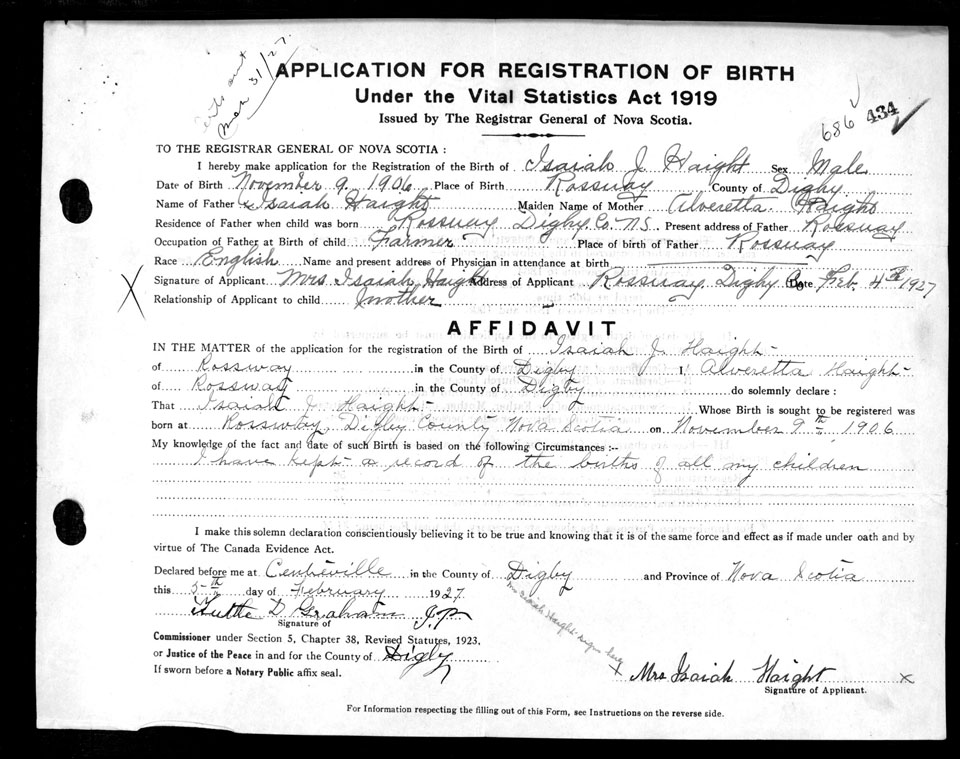 Mar 31/27.
APPLICATION FOR REGISTRATION OF BIRTH
Under the Vital Statistics Act 1919
Issued by The Registrar General of Nova Scotia.
686 434
TO THE REGISTRAR GENERAL OF NOVA SCOTIA :
I hereby make application for the Registration of the Birth of Isaiah J Haight Sex Male
Date of Birth November 9. 1906 Place of Birth Rossway County of Digby
Name of Father Isaiah Haight Maiden Name of Mother Alveretta Haight
Residence of Father when child was born Rossway Digby Co. N.S. Present address of Father Rossway
Occupation of Father at Birth of child Farmer Place of birth of Father Rossway
Race English Name and present address of Physician in attendance at birth
X Signature of Applicant Mrs Isaiah Haight Address of Applicant Rossway Digby Co Date Feb 4th 1927
Relationship of Applicant to child mother
AFFIDAVIT
IN THE MATTER of the application for the registration of the Birth of Isaiah J. Haight
of Rossway in the County of Digby I, Alveretta Haight
of Rossway in the County of Digby do solemnly declare :
That Isaiah J. Haight Whose Birth is sought to be registered was
born at Rossway, Digby County Nova Scotia on November 9th, 1906
My knowledge of the fact and date of such Birth is based on the following Circumstances :-
I have kept a record of the births of all my children
I make this solemn declaration conscientiously believing it to be true and knowing that it is of the same force and effect as if made under oath and by
virtue of The Canada Evidence Act.
Declared before me at Centreville in the County of Digby and Province of Nova Scotia
this 5th day of February 1927.
D Graham J.P.
Signature of
Commissioner under Section 5, Chapter 38, Revised Statutes, 1923,
or Justice of the Peace in and for the County of Digby
If sworn before a Notary Public affix seal.
Mrs Isaiah Haight sign here
x Mrs Isaiah Haight x
Signature of Applicant.
For Information respecting the filling out of this Form, see Instructions on the reverse side.